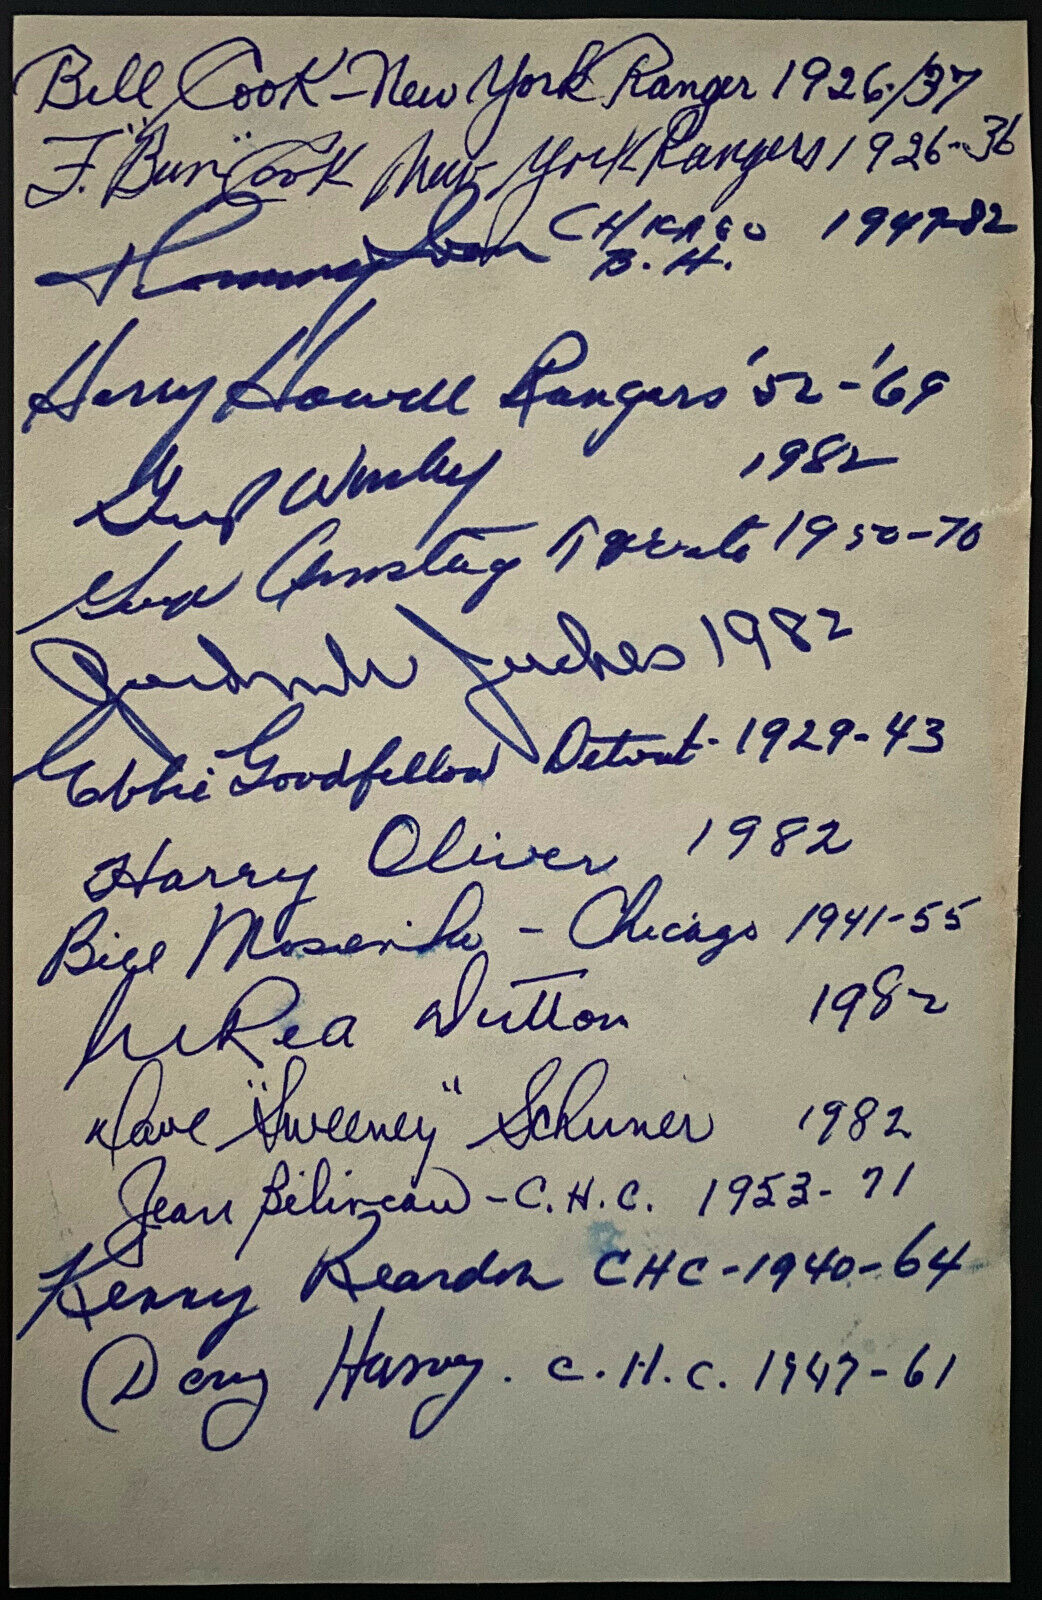 Bill Cook - New York Ranger 1926/37
F. "Bun" Cook New York Rangers 1926-36
Tommy Ivan CHICAGO 1947-82
B.H.
Harry Howell Rangers '52-'69
Gump Worsley 1982
George Armstrong Toronto 1950-70
1982
Ebbie Goodfellow Detroit - 1929-43
Harry Oliver 1982
Bill Mosienko - Chicago 1941-55
Dutton 1982
Dave "Sweeney" Schriner 1982
Jean Béliveau - C.H.C. 1953-71
Kenny Reardon CHC - 1940-64
Doug Harvey. C.H.C. 1947-61